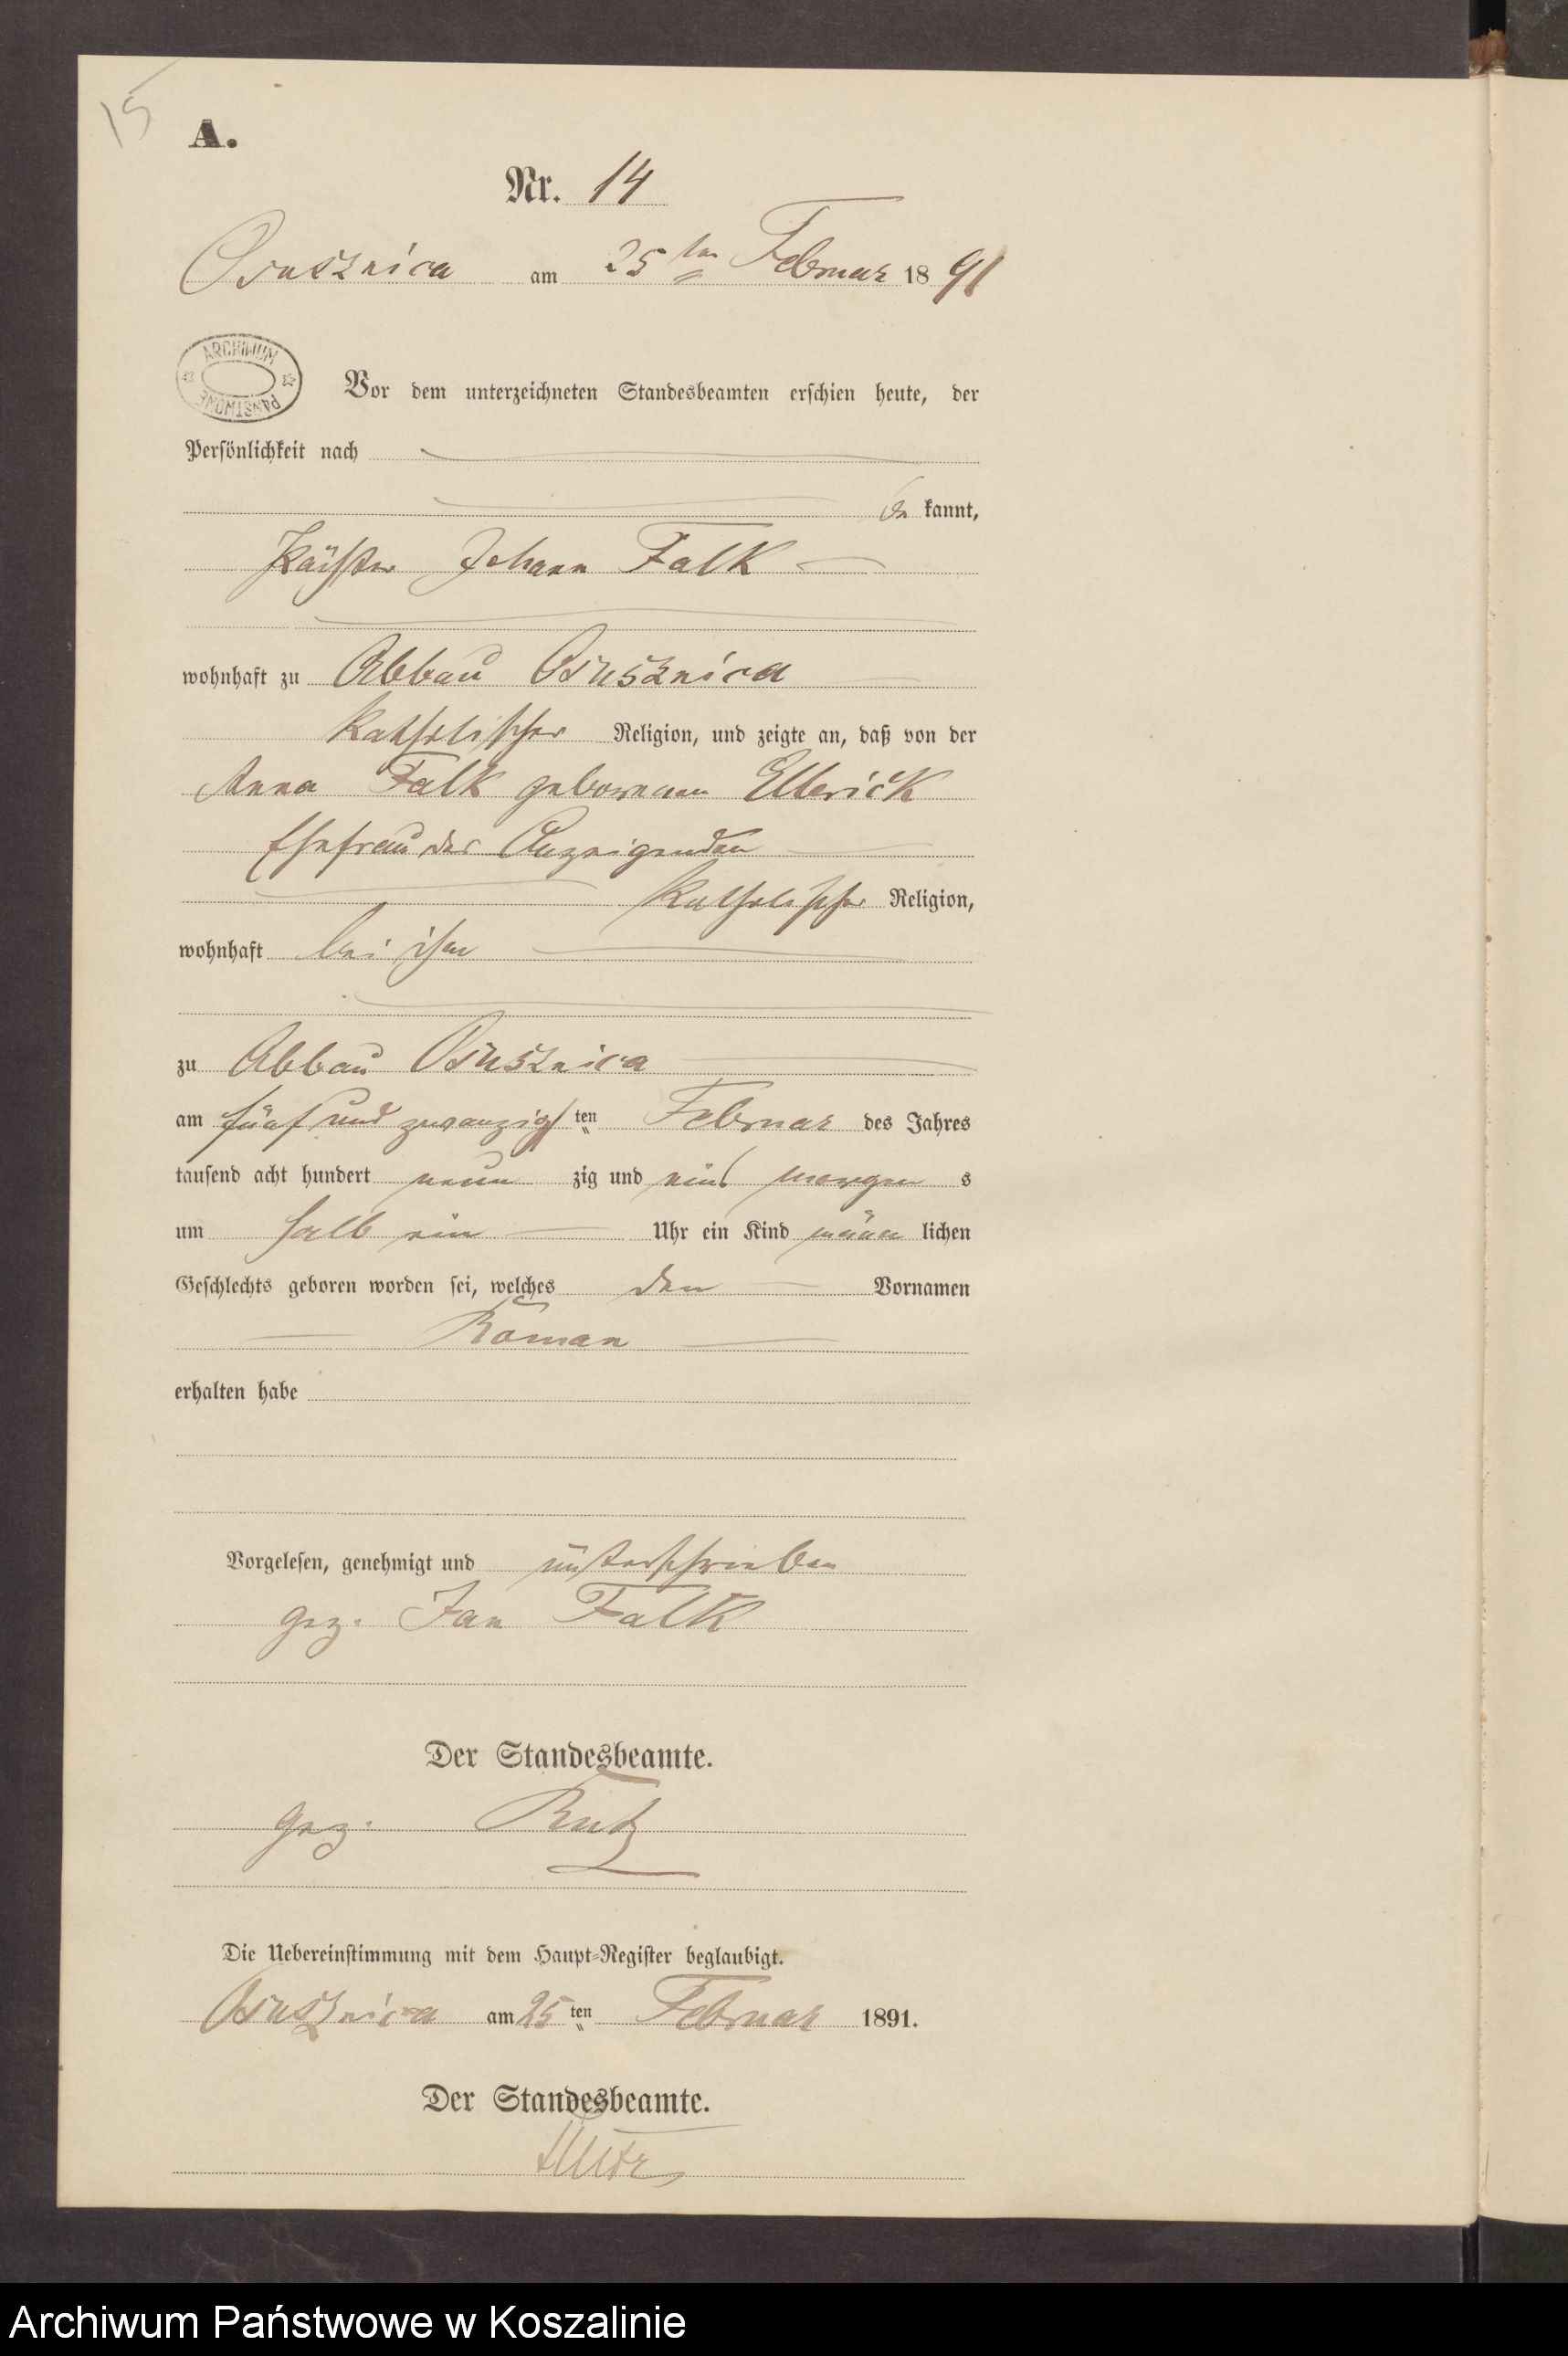 15
A.
Nr. 14
Ossusznica am 25ten Februar 1891
ARCHIWUM PAŃSTWOWE
Vor dem unterzeichneten Standesbeamten erschien heute, der
Persönlichkeit nach
be kannt,
Johann Falk
wohnhaft zu Abbau Ossusznica
katholischer Religion, und zeigte an, daß von der
Anna Falk geborenen Ellerick
Ehefrau des Anzeigenden
katholischer Religion,
wohnhaft bei ihm
zu Abbau Ossusznica
am fünf und zwanzigsten Februar des Jahres
tausend acht hundert neun zig und eins morgen s
um halb ein Uhr ein Kind männ lichen
Geschlechts geboren worden sei, welches den Vornamen
Roman
erhalten habe
Vorgelesen, genehmigt und unterschrieben
gez. Jan Falk
Der Standesbeamte.
gez. Rutz
Die Uebereinstimmung mit dem Haupt-Register beglaubigt.
Ossusznica am 25ten Februar 1891.
Der Standesbeamte.
Archiwum Państwowe w Koszalinie